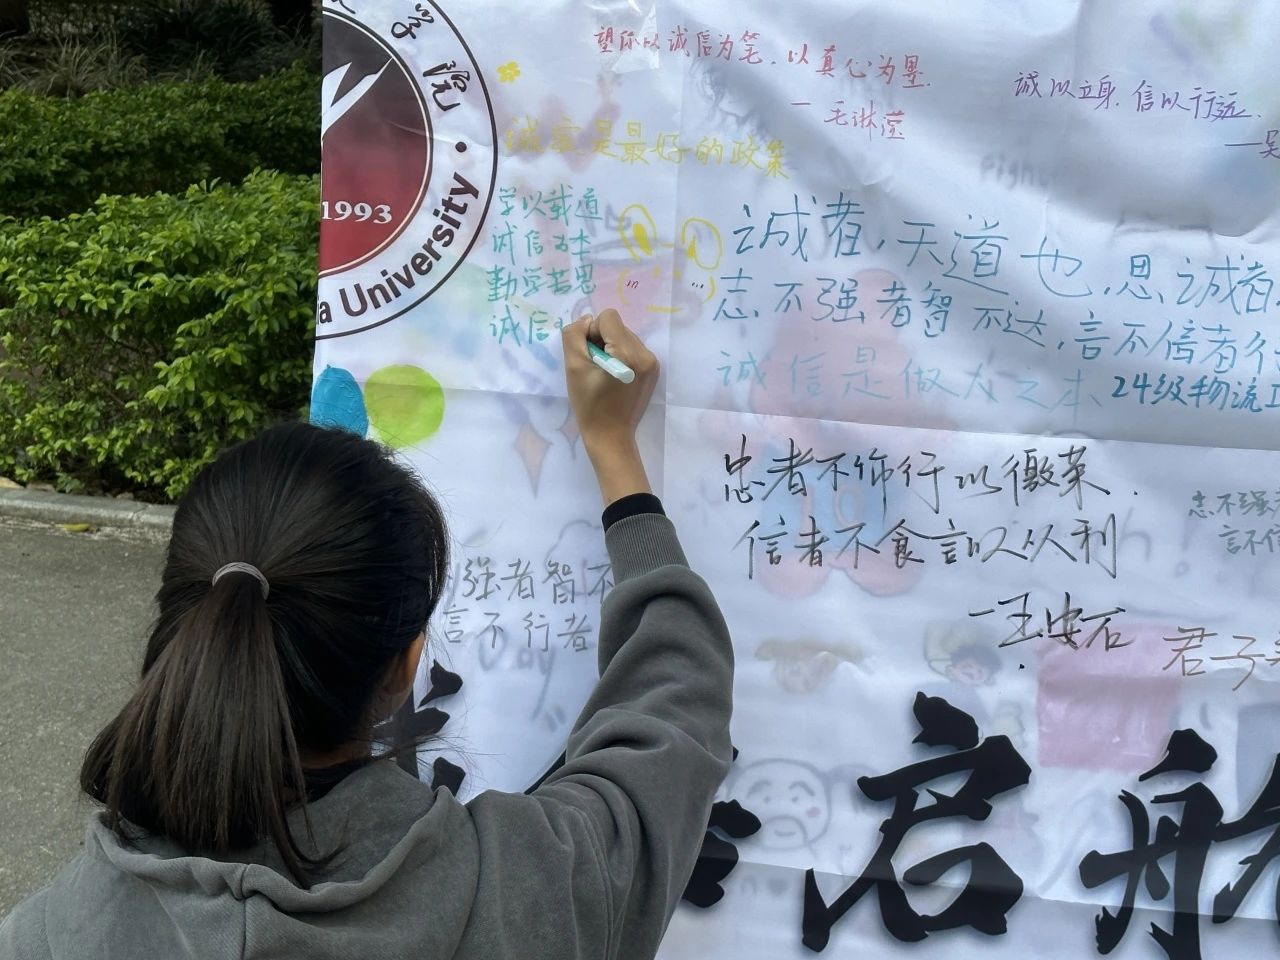 学院
1993
University
望你以诚信为笔，以真心为墨
一 毛淋滢
诚以立身，信以行远
诚实是最好的政策
学以载道
诚信为本
勤学苦思
诚信
诚者，天道也，思诚者
志不强者智不达，言不信者行
诚信是做人之本
24级物流工
忠者不饰行以徼荣
信者不食言以从利
一王安石
志不强
言不信
强者智不
言不行者
君子
启航